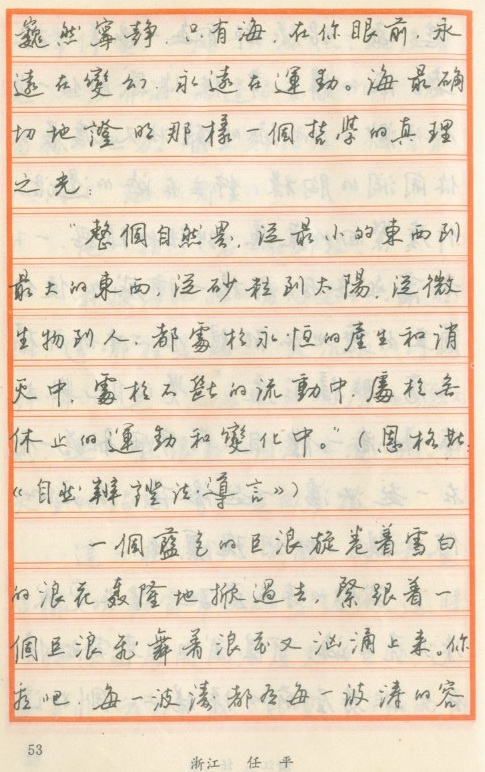 巍然寧静．只有海，在你眼前，永
遠在變幻．永遠在運動。海最确
切地證明那樣一個哲學的真理
之光：
“整個自然界，從最小的東西到
最大的東西，從砂粒到太陽，從微
生物到人．都處於永恒的產生和消
灭中，處於不斷的流動中，處於無
休止的運動和變化中。”（恩格斯：
《自然辩證法·導言》）
一個藍色的巨浪旋卷着雪白
的浪花轟隆地掀過去，緊跟着一
個巨浪飛舞着浪花又汹涌上来。你
看吧，每一波濤都有每一波濤的容
53
浙江 任平